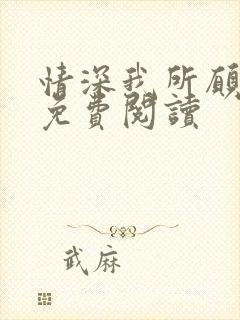 情深我所願
免費閱讀
武麻